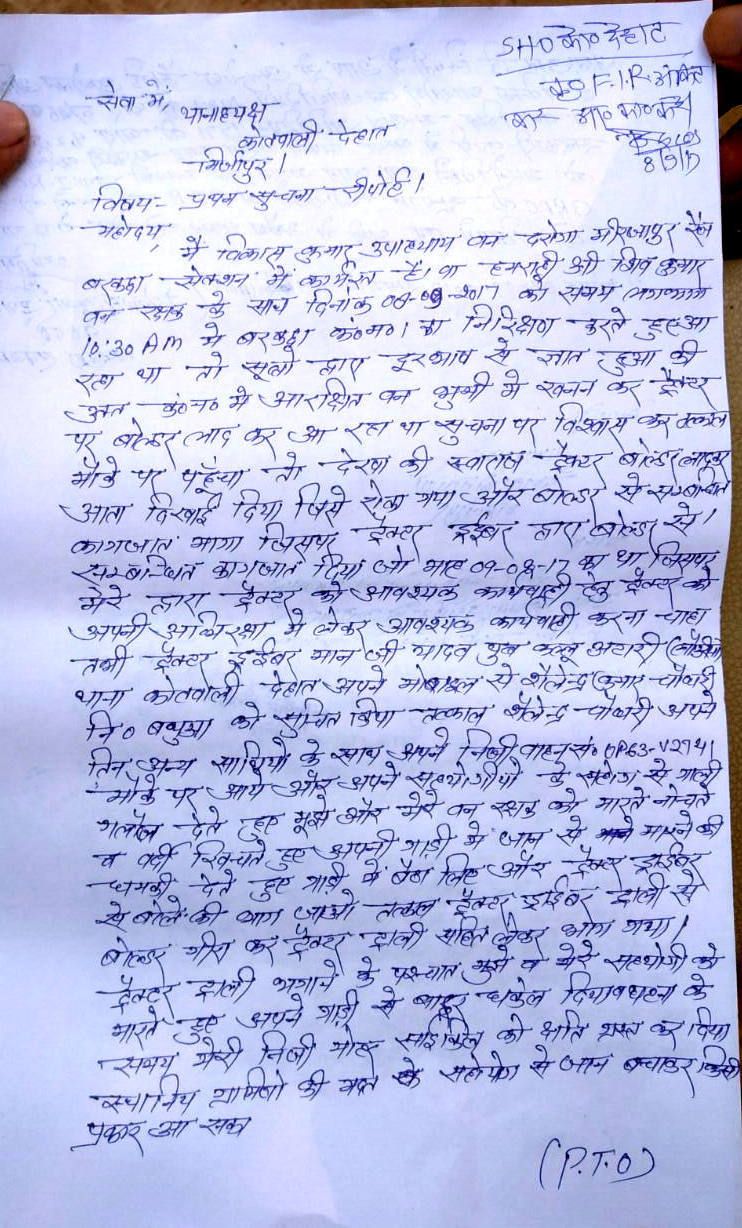 SHO को० देहात
कृ० F.I.R. अंकित
कर आ० का० करें
8/9/17
सेवा में,
थानाध्यक्ष
कोतवाली देहात
मिर्जापुर।
विषय- प्रथम सुचना रीपोर्ट।
महोदय,
मैं विकास कुमार उपाध्याय वन दरोगा मीरजापुर रेंज
बरकछा सेक्शन में कार्यरत है। वा हमराही श्री शिव कुमार
वन रक्षक के साथ दिनांक 08-09-2017 को समय लगभग
10:30 AM मे बरकछा कं०न०1 का निरिक्षण करते हुए आ
रहा था तो सूत्रो द्वारा दूरभाष से ज्ञात हुआ की
उक्त कं०न० मे आरक्षित वन भुमी मे खनन कर ट्रैक्टर
पर बोल्डर लाद कर आ रहा था सुचना पर विश्वास कर तत्काल
मौके पर पहुँचा तो देखा की स्वाराज ट्रैक्टर बोल्डर लादकर
आता दिखाई दिया जिसे रोका गया और बोल्डर से सम्बन्धित
कागजात मागा जिसपर ट्रैक्टर ड्राईबर द्वारा बोल्डर से।
सम्बन्धित कागजात दिया जो माह 09-08-17 का था जिसपर
मेरे द्वारा ट्रैक्टर को आवश्यक कार्यवाही हेतु ट्रैक्टर को
अपनी अभिरक्षा मे लेकर आवश्यक कार्यवाही करना चाहा
तभी ट्रैक्टर ड्राईबर मान जी यादव पुत्र कल्लू अटारी
थाना कोतवाली देहात अपने मोबाइल से शैलेन्द्र कुमार चौधरी
नि० बथुआ को सुचित किया तत्काल शैलेन्द्र चौधरी अपने
तिन अन्य साथियो के साथ अपने निजी वाहन सं० UP63-V2741
मौके पर आये और अपने सहयोगीयो के सहयोग से गाली
गलौज देते हुए मुझे और मेरे वन रक्षक को मारते नोचते
व वर्दी खिचते हुए अपनी गाड़ी मे जान से मारने की
धमकी देते हुए गाड़ी मे बैठा लिए और ट्रैक्टर ड्राईबर
से बोले की भाग जाओ तत्काल ट्रैक्टर ड्राईबर ट्राली से
बोल्डर गीरा कर ट्रैक्टर ट्राली सहित लेकर भाग गया।
ट्रैक्टर ट्राली भगाने के पश्चात मुझे व मेरे सहयोगी को
मारते हुए अपने गाड़ी से बाहर धकेल दिया व घटना के
समय मेरी निजी मोटर साईकिल को क्षति ग्रस्त कर दिया
स्थानिय ग्रामिणो की मदद के सहयोग से जान बचाकर किसी
प्रकार आ सका
(P.T.O)